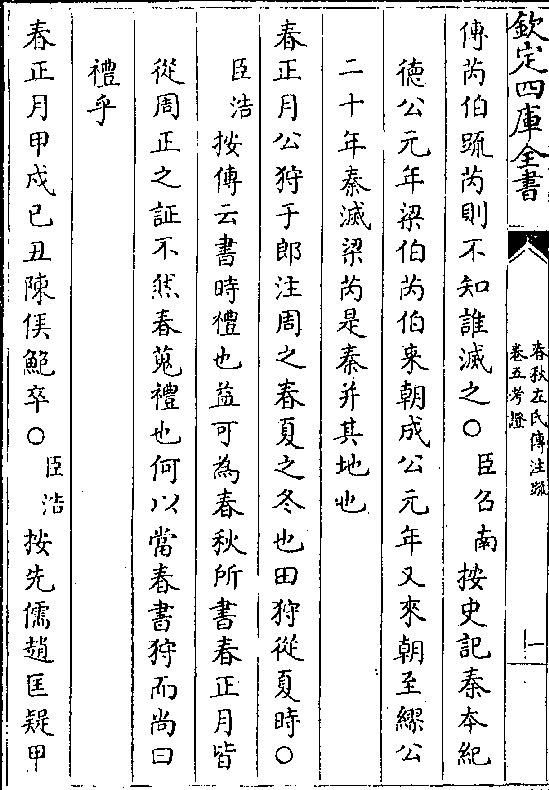 欽定四庫全書
春秋左氏傳注疏
卷五考證
一
傳芮伯疏芮則不知誰滅之○臣召南按史記秦本紀
德公元年梁伯芮伯來朝成公元年又來朝至繆公
二十年秦滅梁芮是秦并其地也
春正月公狩于郎注周之春夏之冬也田狩從夏時○
臣浩按傳云書時禮也益可為春秋所書春正月皆
從周正之証不然春蒐禮也何以當春書狩而尚曰
禮乎
春正月甲戌己丑陳侯鮑卒○臣浩按先儒趙匡疑甲